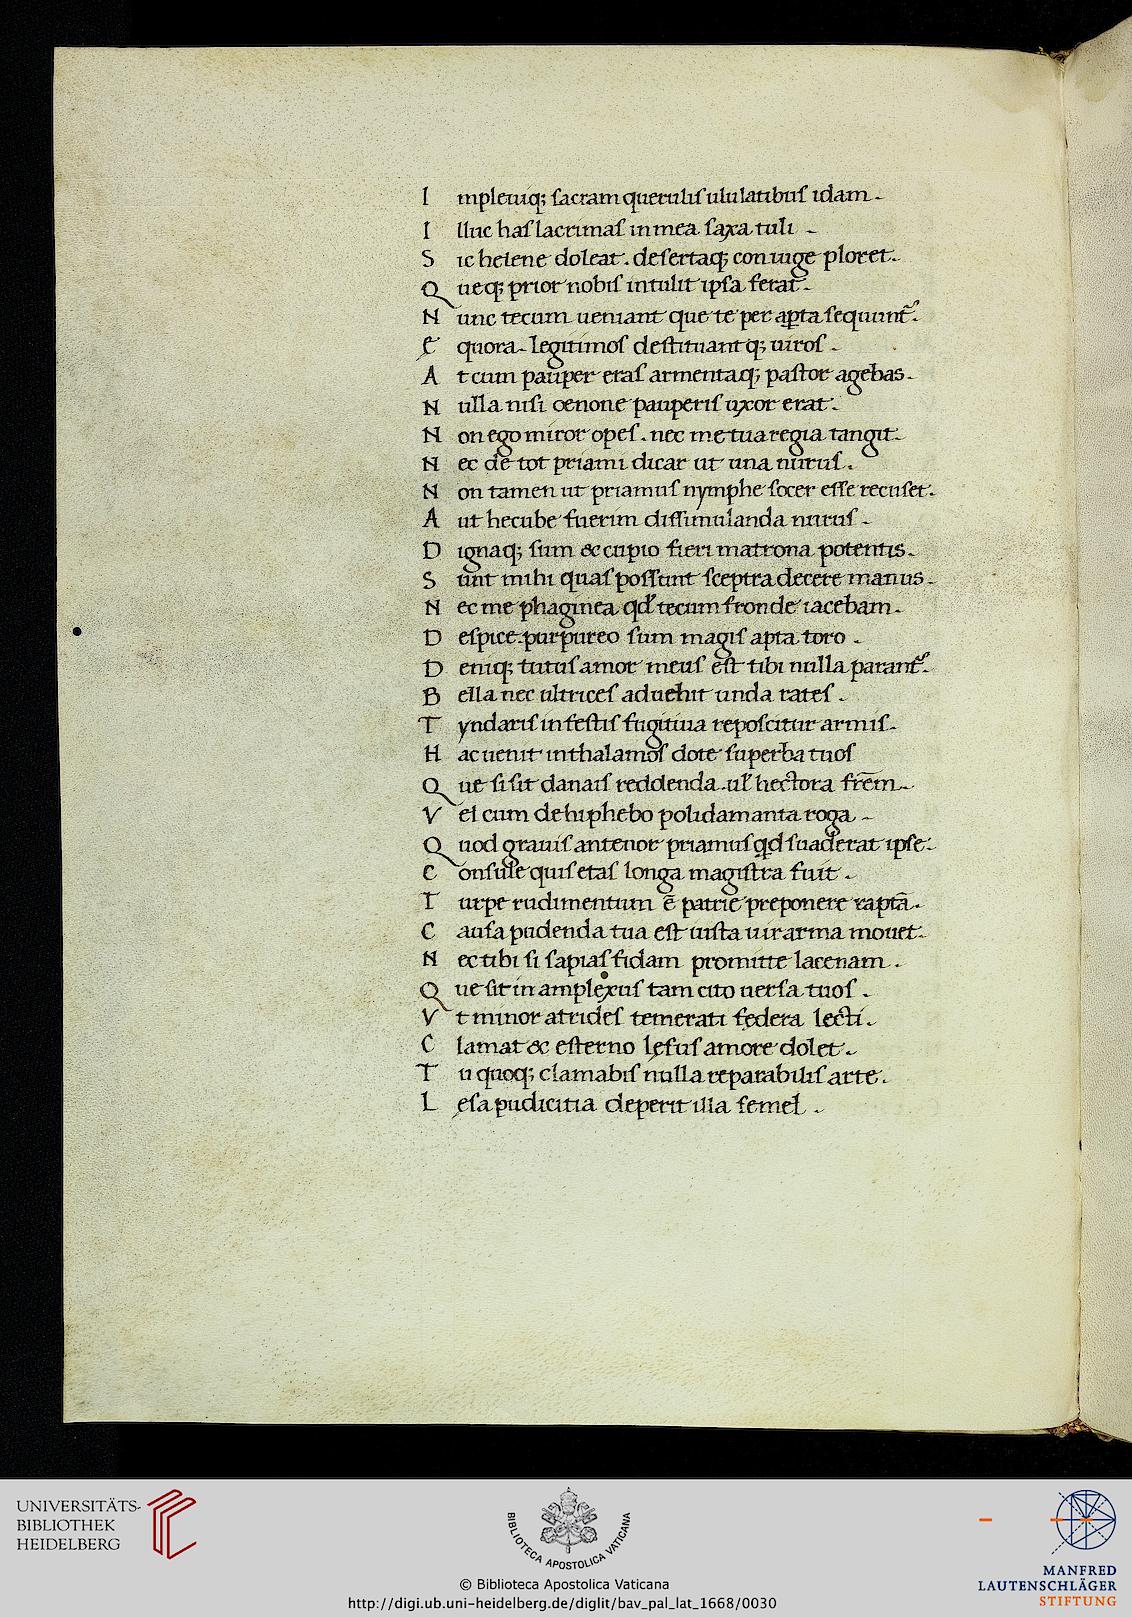 I mpleuiq; sacram querulis ululatibus idam.
I lluc has lacrimas in mea saxa tuli.
S ic helene doleat. desertaq; coniuge ploret.
Q ueq; prior nobis intulit ipsa ferat.
N unc tecum ueniant que te per apta sequunt̃.
E quora. legitimos destituantq; uiros.
A t cum pauper eras armentaq; pastor agebas.
N ulla nisi oenone pauperis uxor erat.
N on ego miror opes. nec me tua regia tangit.
N ec de tot priami dicar ut una nurus.
N on tamen ut priamus nymphe socer esse recuset.
A ut hecube fuerim dissimulanda nurus.
D ignaq; sum & cupio fieri matrona potentis.
S unt mihi quas possunt sceptra decere manus.
N ec me phaginea qđ tecum fronde iacebam.
D espice. purpureo sum magis apta toro.
D eniq; tutus amor meus est tibi nulla parant̃.
B ella nec ultrices aduehit unda rates.
T yndaris infestis fugitiua reposcitur armis.
H ac uenit in thalamos dote superba tuos
Q ue si sit danais reddenda. ul̃ hectora frẽm.
V el cum dehiphebo polidamanta roga.
Q uod grauis antenor priamus qđ suaderat ipse.
C onsule quis etas longa magistra fuit.
T urpe rudimentum ẽ patrie preponere raptã.
C ausa pudenda tua est iusta uir arma mouet.
N ec tibi si sapias fidam promitte lacenam.
Q ue sit in amplexus tam cito uersa tuos.
V t minor atrides temerati federa lecti.
C lamat & esterno lęsus amore dolet.
T u quoq; clamabis nulla reparabilis arte.
L ęsa pudicitia deperit illa semel.
UNIVERSITÄTS-
BIBLIOTHEK
HEIDELBERG
BIBLIOTECA APOSTOLICA VATICANA
MANFRED
LAUTENSCHLÄGER
STIFTUNG
© Biblioteca Apostolica Vaticana
http://digi.ub.uni-heidelberg.de/diglit/bav_pal_lat_1668/0030